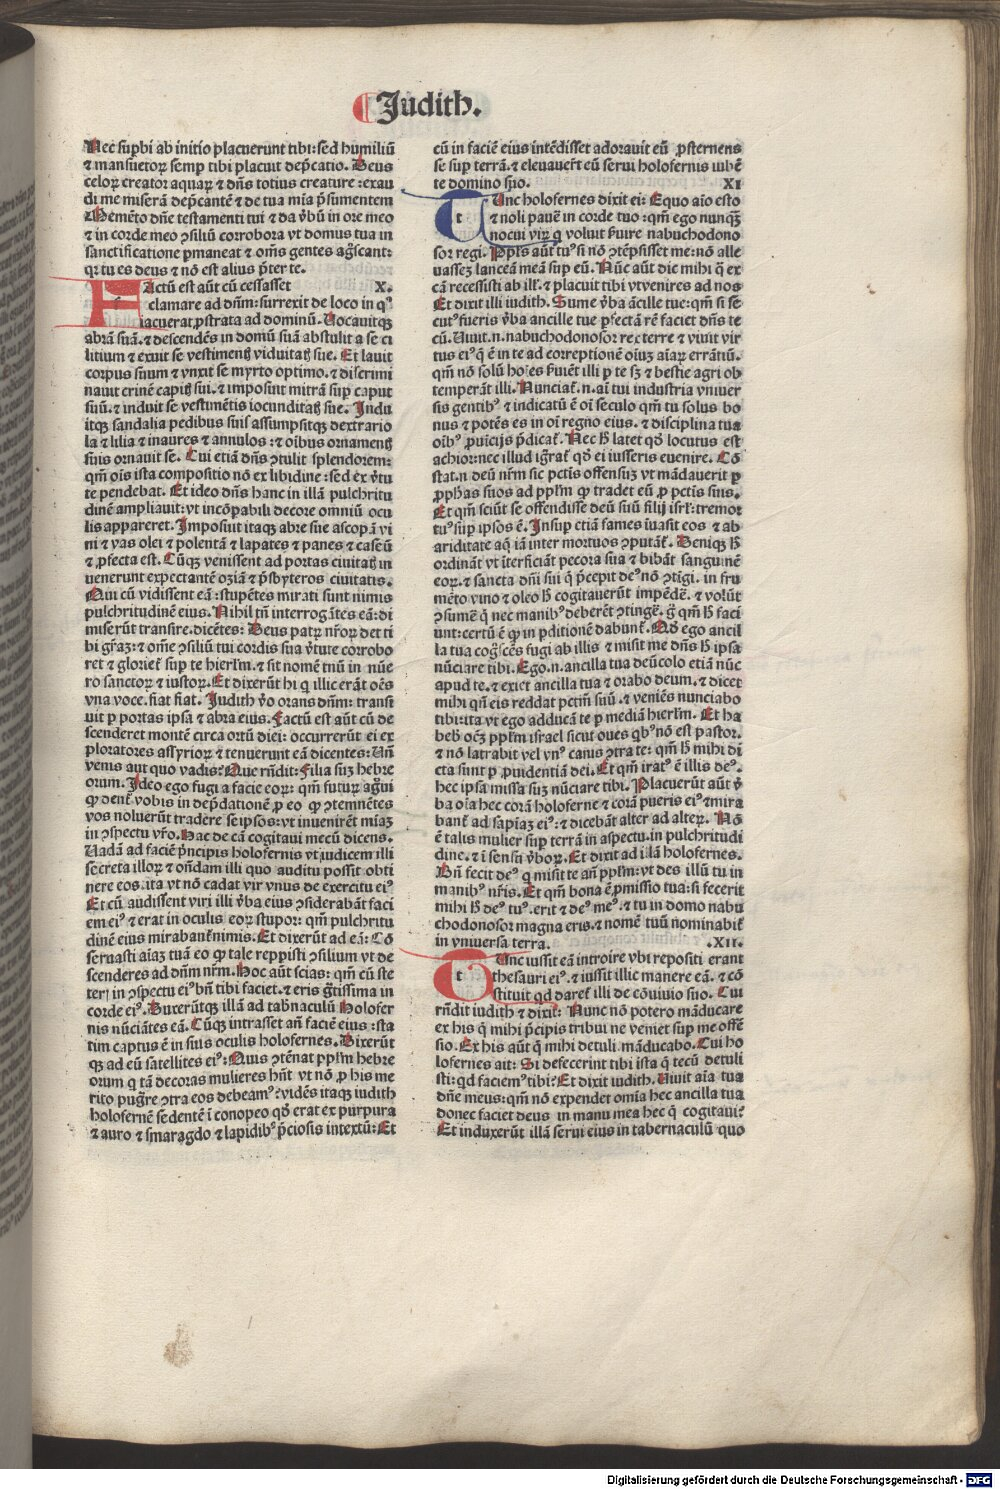 Judith.
Nec supbi ab initio placuerunt tibi: sed humiliū
⁊ mansuetoꝝ semp tibi placuit dep̄catio. Deus
celoꝝ creator aquaꝝ ⁊ dn̄s totius creature: exau
di me miserā dep̄cantē ⁊ de tua mia p̄sumentem
Memēto dn̄e testamenti tui ⁊ da v̄bū in ore meo
⁊ in corde meo ꝯsiliū corrobora vt domus tua in
sanctificatione ꝑmaneat ⁊ om̄s gentes ag̅scant:
qꝛ tu es deus ⁊ nō est alius p̄ter te.
Factū est aūt cū cessasset X.
clamare ad dn̄m: surrexit de loco in qͦ
iacuerat ꝓstrata ad dominū. Vocauitqꝫ
abrā suā. ⁊ descendēs in domū suā abstulit a se ci
litium ⁊ exuit se vestimentꝭ viduitatꝭ sue. Et lauit
corpus suum ⁊ vnxit se myrto optimo. ⁊ discrimi
nauit crinē capitꝭ sui. ⁊ imposuit mitrā sup caput
suū. ⁊ induit se vestimētis iocunditatꝭ sue. Indu
itqꝫ sandalia pedibus suis assumpsitqꝫ dextrario
la ⁊ lilia ⁊ inaures ⁊ annulos: ⁊ oībus ornamentꝭ
suis ornauit se. Cui etiā dn̄s ꝯtulit splendorem:
qm̄ oīs ista compositio nō ex libidine: sed ex v̄tu
te pendebat. Et ideo dn̄s hanc in illā pulchritu
dinē ampliauit: vt incōpabili decore omniū ocu
lis appareret. Imposuit itaqꝫ abre sue ascopā vi
ni ⁊ vas olei ⁊ polentā ⁊ lapates ⁊ panes ⁊ caseū
⁊ ꝓfecta est. Cūqꝫ venissent ad portas ciuitatꝭ in
uenerunt expectantē oziā ⁊ p̄sbyteros ciuitatis.
Qui cū vidissent eā: stupētes mirati sunt nimis
pulchritudinē eius. Nihil tn̄ interrogātes eā: di
miserūt transire. dicētes: Deus patꝝ nr̄oꝝ det ti
bi gr̄aꝫ: ⁊ om̄e ꝯsiliū tui cordis sua v̄tute corrobo
ret ⁊ glorieť sup te hierlꝫm. ⁊ sit nomē tuū in nūe
ro sanctoꝝ ⁊ iustoꝝ. Et dixerūt hi q̄ illic erāt oēs
vna voce. fiat fiat. Judith v̄o orans dn̄m: transi
uit ꝑ portas ipsa ⁊ abra eius. Factū est aūt cū de
scenderet montē circa ortū diei: occurrerūt ei ex
ploratores assyrioꝝ ⁊ tenuerunt eā dicentes: Vn̄
venis aut quo vadis? Que rn̄dit: Filia suꝫ hebre
orum. Ideo ego fugi a facie eoꝝ: qm̄ futuꝝ ag̅ui
ꝙ denť vobis in dep̄dationē ꝓ eo ꝙ ꝯtemnētes
vos noluerūt tradere se ipsos: vt inuenirēt miaꝫ
in ꝯspectu vr̄o. Hac de cā cogitaui mecū dicens.
Vadā ad faciē p̄ncipis holofernis vt iudicem illi
secreta illoꝝ ⁊ on̄dam illi quo auditu possit obti
nere eos. ita vt nō cadat vir vnus de exercitu eiꝰ
Et cū audissent viri illi v̄ba eius ꝯsiderabāt faci
em eiꝰ ⁊ erat in oculis eoꝝ stupor: qm̄ pulchritu
dinē eius mirabanť nimis. Et dixerūt ad eā: Cō
seruasti aīaꝫ tuā eo ꝙ tale reppisti ꝯsilium vt de
scenderes ad dn̄m nr̄m. Hoc aūt scias: qm̄ cū ste
teris in ꝯspectu eiꝰ bn̄ tibi faciet. ⁊ eris g̅tissima in
corde eiꝰ. Duxerūtqꝫ illā ad tab̄naculū Holofer
nis nūciātes eā. Cūqꝫ intrasset an̄ faciē eius: sta
tim captus ē in suis oculis holofernes. Dixerūt
qꝫ ad eū satellites eiꝰ: Quis ꝯtēnat pplm̄ hebre
orum q̄ tā decoras mulieres hn̄t vt nō ꝓ his me
rito pugr̄e ꝯtra eos debeamꝰ? vidēs itaqꝫ iudith
holofernē sedentē ī conopeo qd̄ erat ex purpura
⁊ auro ⁊ smaragdo ⁊ lapidibꝰ p̄ciosis intextū: Et
cū in faciē eius intēdisset adorauit eū ꝓsternens
se sup terrā. ⁊ eleuauer̄t eū serui holofernis iubē
te domino suo. XI
Tunc holofernes dixit ei: Equo aīo esto
⁊ noli pauē in corde tuo: qm̄ ego nunqꝫ
nocui viꝝ q̄ voluit ſuire nabuchodono
sor regi. Pplꝰs aūt tuꝰ si nō ꝯtēpsisset me: nō alle
uasseꝫ lanceā meā sup eū. Nūc aūt dic mihi q̄ ex
cā recessisti ab ill. ⁊ placuit tibi vt venires ad nos
Et dixit illi iudith. Sume v̄ba ācille tue: qm̄ si se
cutꝰ fueris v̄ba ancille tue pfectā rē faciet dn̄s te
cū. Viuit .n. nabuchodonosor rex terre ⁊ viuit vir
tus eiꝰ q̄ ē in te ad correptionē oīuꝫ aīaꝝ errātiū.
qm̄ nō solū hoīes ſuiēt illi ꝑ te sꝫ ⁊ bestie agri ob
temperāt illi. Nunciať .n. aīi tui industria vniuer
sis gentibꝰ ⁊ indicatū ē oī seculo qm̄ tu solus bo
nus ⁊ potēs es in oī regno eius. ⁊ disciplina tua
oībꝰ ꝓuicijs p̄dicať. Nec h̄ latet qd̄ locutus est
achior: nec illud ig̅rať qd̄ ei iusseris euenire. Cō
stat .n. deū nr̄m sic pctis offensuꝫ vt mādauerit ꝑ
ꝓphas suos ad pplm̄ ꝙ tradet eū ꝓ pctis suis.
Et qm̄ sciūt se offendisse deū suū filij isrl: tremor
tuꝰ sup ipsos ē. Insup etiā fames īuasit eos ⁊ ab
ariditate aq̄ iā inter mortuos ꝯputāť. Deniqꝫ h̄
ordināt vt īterficiāt pecora sua ⁊ bibāt sanguinē
eoꝝ. ⁊ sancta dn̄i sui q̄ p̄cepit deꝰ nō ꝯtigi. in fru
mēto vino ⁊ oleo h̄ cogitauerūt impēdē. ⁊ volūt
ꝯsumē q̄ nec manibꝰ deberēt ꝯtingē. g̊ qm̄ h̄ faci
unt: certū ē ꝙ in pditionē dabunť. Qd̄ ego ancil
la tua cog̅scēs fugi ab illis ⁊ misit me dn̄s h̄ ipsa
nūciare tibi. Ego .n. ancilla tua deū colo etiā nūc
apud te. ⁊ exiet ancilla tua ⁊ orabo deum. ⁊ dicet
mihi qn̄ eis reddat pctm̄ suū. ⁊ veniēs nunciabo
tibi: ita vt ego adducā te ꝑ mediā hierlꝫm. Et ha
beb̄ oēꝫ pplm̄ israel sicut oues qͥbꝰ nō est pastor.
⁊ nō latrabit vel vnꝰ canis ꝯtra te: qm̄ h̄ mihi di
cta sunt ꝑ ꝓuidentiā dei. Et qm̄ iratꝰ ē illis deꝰ.
hec ipsa missa suꝫ nūciare tibi. Placuerūt aūt v̄
ba oīa hec corā holoferne ⁊ corā pueris eiꝰ ⁊ mira
banť ad sapīaꝫ eiꝰ: ⁊ dicebāt alter ad alteꝝ. Nō
ē talis mulier sup terrā in aspectu. in pulchritudi
dine. ⁊ ī sensu v̄boꝝ. Et dixit ad illā holofernes.
Bn̄ fecit deꝰ q̄ misit te an̄ pplm̄: vt des illū tu in
manibꝰ nr̄is. Et qm̄ bona ē ꝓmissio tua: si fecerit
mihi h̄ deꝰ tuꝰ. erit ⁊ deꝰ meꝰ. ⁊ tu in domo nabu
chodonosor magna eris. ⁊ nomē tuū nominabiť
in vniuersa terra. .XII.
Tunc iussit eā introire vbi repositi erant
thesauri eiꝰ. ⁊ iussit illic manere eā. ⁊ cō
stituit qd dareť illi de cōuiuio suo. Cui
rn̄dit iudith ⁊ dixit: Nunc nō potero māducare
ex his q̄ mihi p̄cipis tribui ne veniet sup me offē
sio. Ex his aūt q̄ mihi detuli māducabo. Cui ho
lofernes ait: Si defecerint tibi ista q̄ tecū detuli
sti: qd faciemꝰ tibi? Et dixit iudith. Viuit aīa tua
dn̄e meus: qm̄ nō expendet omīa hec ancilla tua
donec faciet deus in manu mea hec q̄ cogitaui?
Et induxerūt illā serui eius in tabernaculū quo
Digitalisierung gefördert durch die Deutsche Forschungsgemeinschaft - DFG